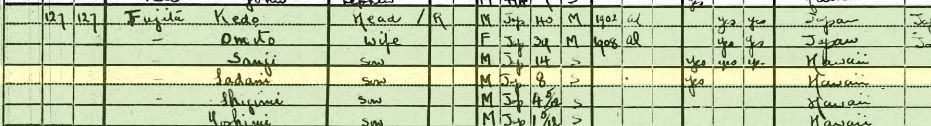 yes
127 127 Fujita Kedo Head 1 R M Jap 40 M 1902 al yes yes Japan Jap
— Omito Wife F Jap 39 M 1908 al yes yes Japan Ja
— Sanji son M Jap 14 S yes yes yes Hawaii
— Sadami son M Jap 8 S yes Hawaii
— Shigimi son M Jap 4 5/12 S Hawaii
Yoshimi son M Jap 1 5/12 S Hawaii